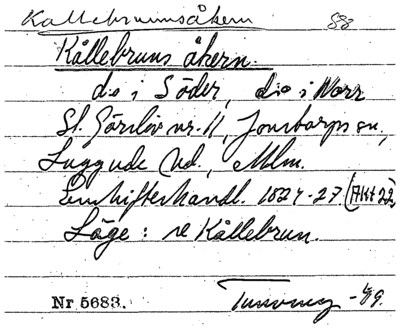 Kallebrunnsåkern 88
Kållebruns åkern.
do i Söder, do i Norr
St. Görslöv nr. 11, sn,
Luggude hd., Mlm.
Enskifteshandl. 1824-27 (Akt 22)
Läge: se Kållebrun.
Nr 5683. -49.